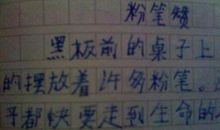 粉笔赞
黑板前的桌子上
的摆放着许多粉笔。
平都快要走到生命的